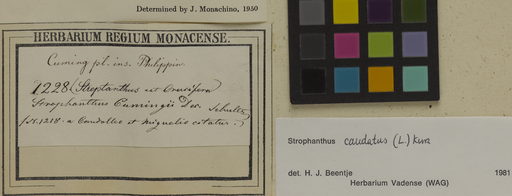 Determined by J. Monachino, 1950
HERBARIUM REGIUM MONACENSE.
Cuming pl. ins. Philippin.
1228 (Streptanthus est Crucifera)
Strophanthus Cumingii Dec.
(N. 1218. a Candolleo et Miquelio citatur.)
Strophanthus caudatus (L.) Kurz
det. H. J. Beentje 1981
Herbarium Vadense (WAG)